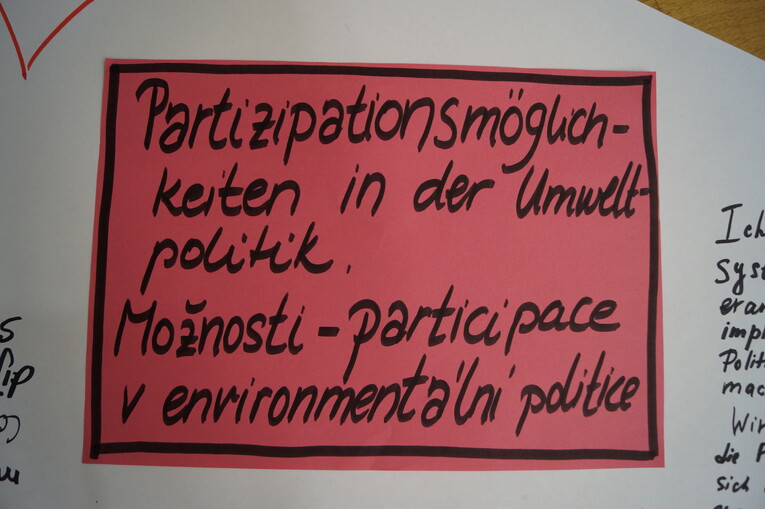 Partizipationsmöglich-
keiten in der Umwelt-
politik.
Možnosti - participace
v environmentální politice
Ich
Syst
eran
impl
Polit
mac
Wir
die F
sich